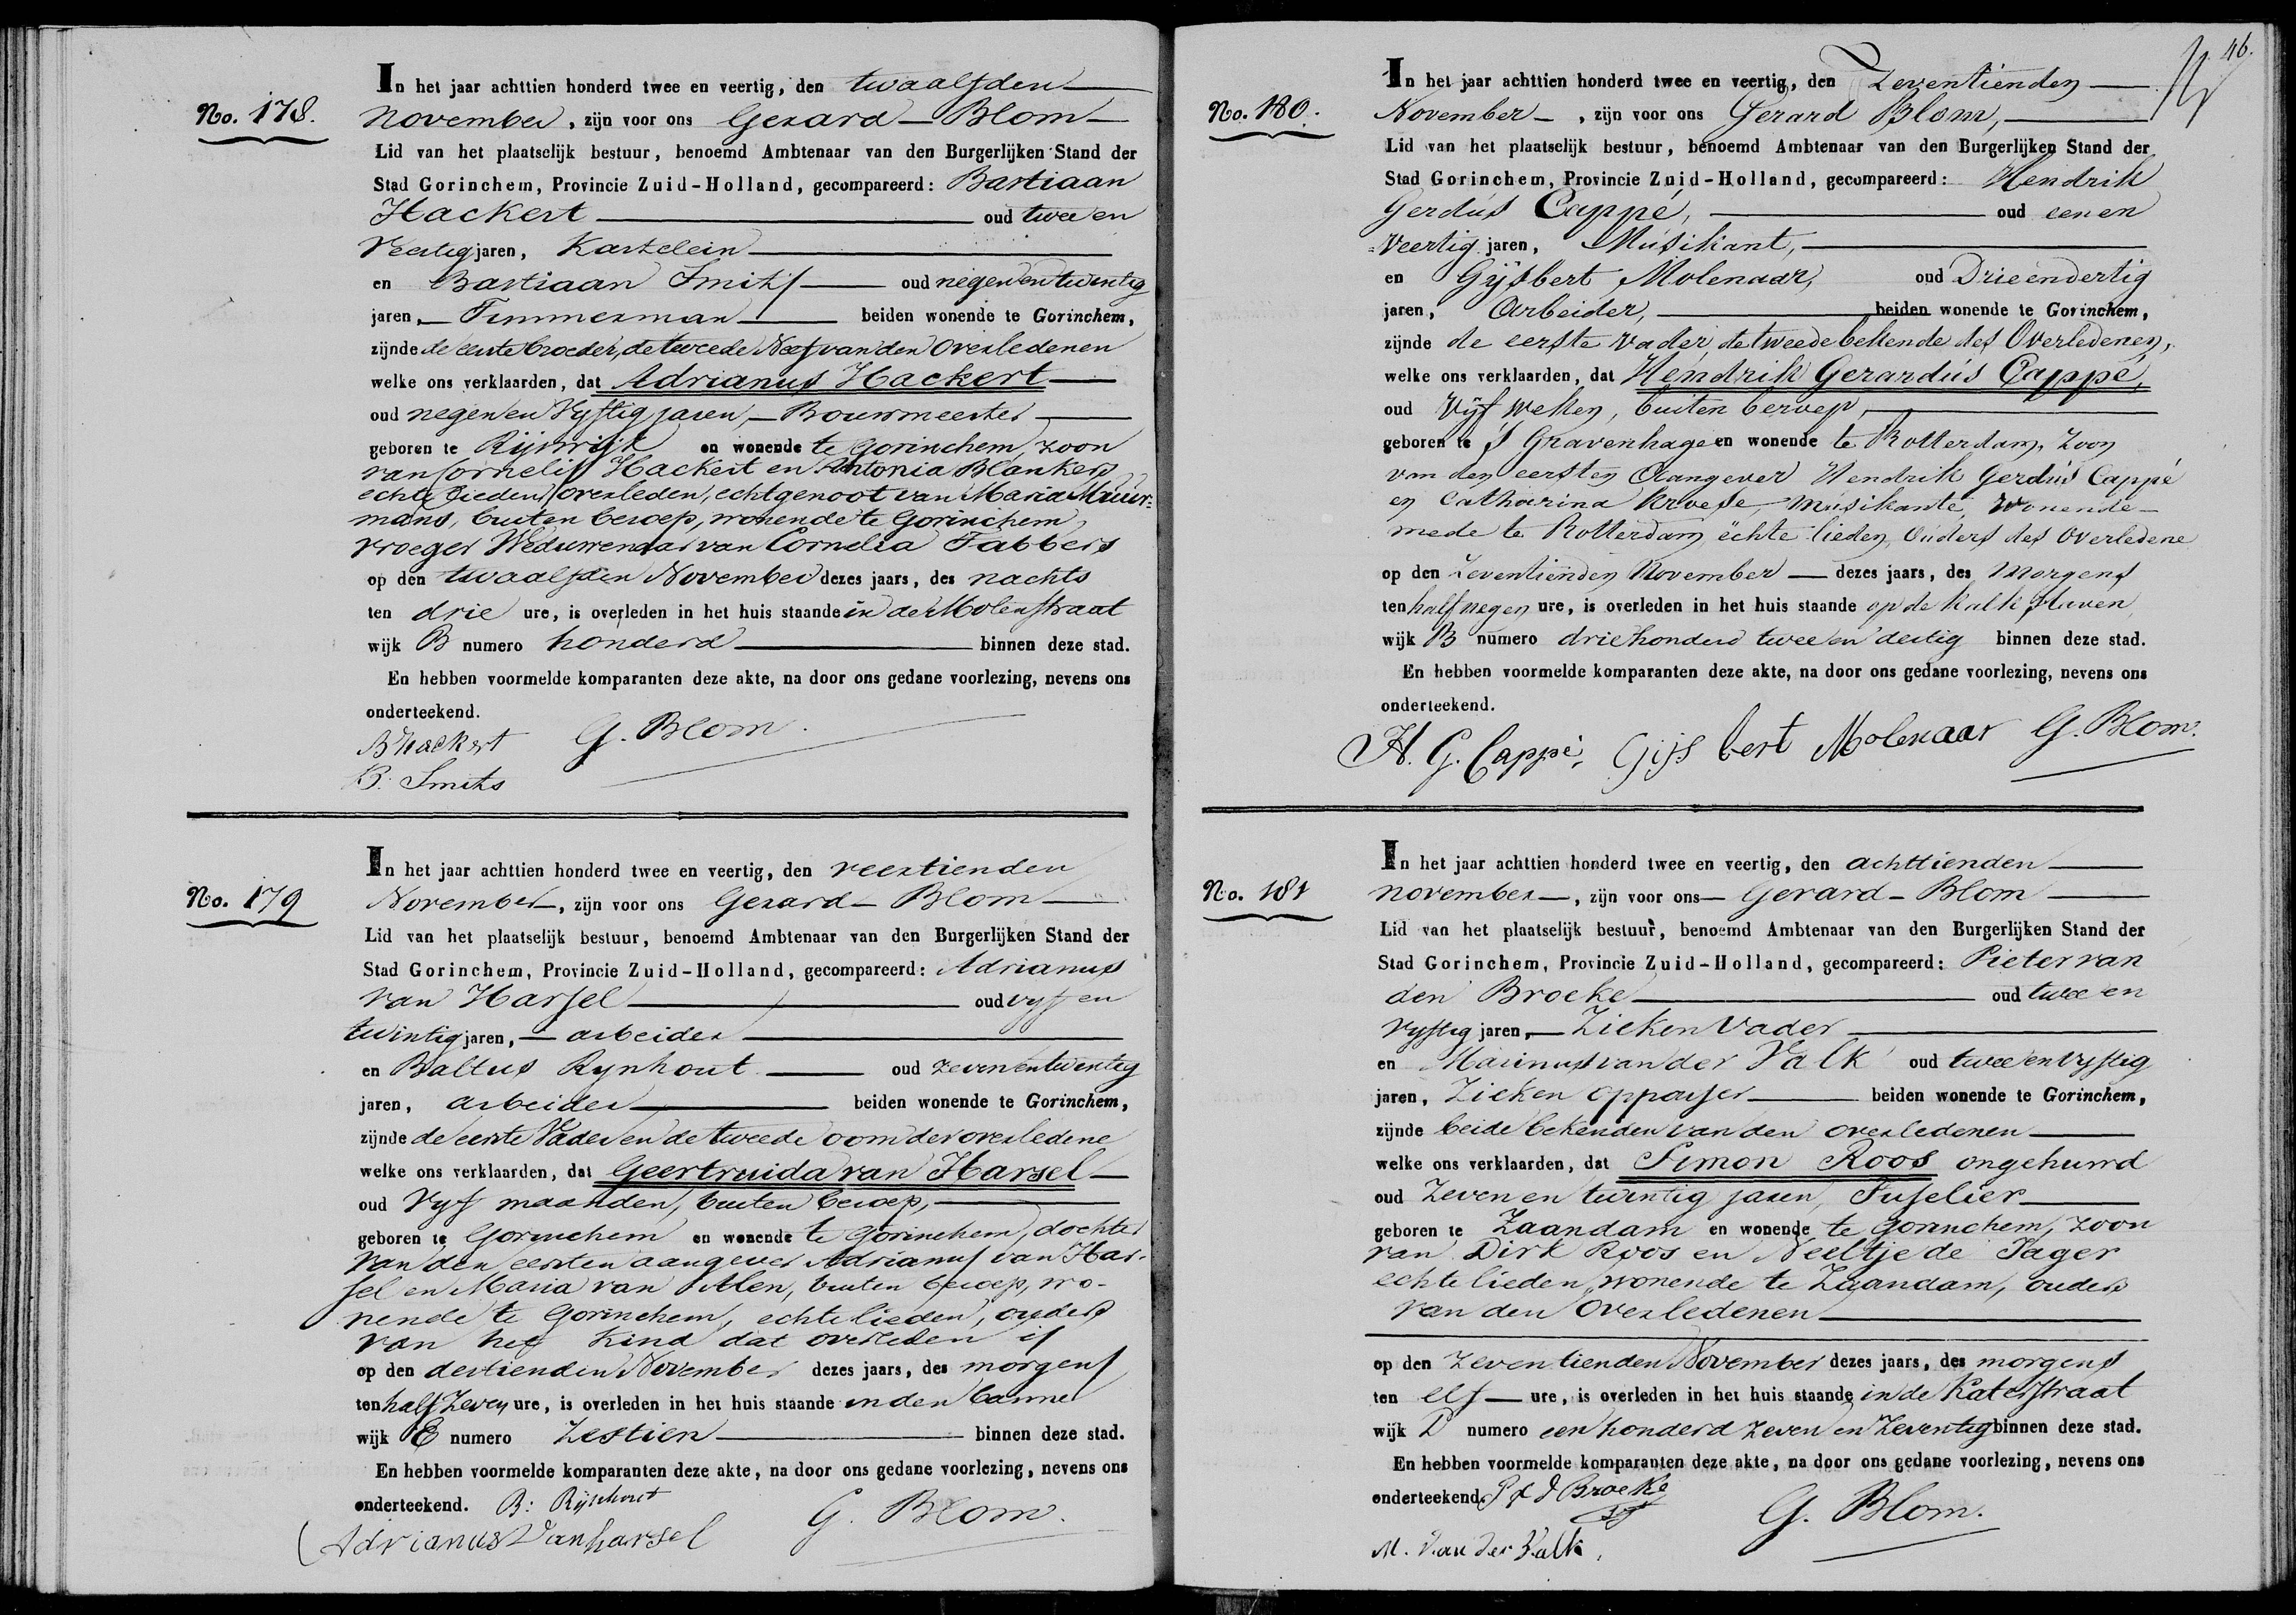 No. 178.
In het jaar achttien honderd twee en veertig, den twaalfden
November, zijn voor ons Gerard Blom
Lid van het plaatselijk bestuur, benoemd Ambtenaar van den Burgerlijken Stand der
Stad Gorinchem, Provincie Zuid-Holland, gecompareerd: Bastiaan
Hackert oud twee en
Veertig jaren, Kastelein
en Bastiaan Smits oud negen en twintig
jaren, Timmerman beiden wonende te Gorinchem,
zijnde de eerste broeder, de tweede Neef van den Overledenen
welke ons verklaarden, dat Adrianus Hackert
oud negen en Vyftig jaren, Bouwmeester
geboren te Rijswijk en wonende te Gorinchem, zoon
van Cornelis Hackert en Antonia Blanken
echte lieden, overleden, echtgenoot van Maria Muur=
mans, buiten beroep, wonende te Gorinchem,
vroeger Weduwenaar van Cornelia Fabbers
op den twaalfden November dezes jaars, des nachts
ten drie ure, is overleden in het huis staande in de Molenstraat
wijk B numero honderd binnen deze stad.
En hebben voormelde komparanten deze akte, na door ons gedane voorlezing, nevens ons
onderteekend.
B Hackert G. Blom.
B. Smits
No. 179
In het jaar achttien honderd twee en veertig, den veertienden
November, zijn voor ons Gerard Blom
Lid van het plaatselijk bestuur, benoemd Ambtenaar van den Burgerlijken Stand der
Stad Gorinchem, Provincie Zuid-Holland, gecompareerd: Adrianus
van Harsel oud vyf en
twintig jaren, arbeider
en Baltus Rynhout oud zeven en twintig
jaren, arbeider beiden wonende te Gorinchem,
zijnde de eerste Vader en de tweede oom der overledene
welke ons verklaarden, dat Geertruida van Harsel
oud Vyf maanden, buiten beroep,
geboren te Gorinchem en wonende te Gorinchem, dochter
van den eersten aangever Adrianus van Har-
sel en Maria van Alen, buiten beroep, wo-
nende te Gorinchem, echte lieden, ouders
van het Kind dat overleden is
op den dertienden November dezes jaars, des morgens
ten half Zeven ure, is overleden in het huis staande in den
wijk E numero Zestien binnen deze stad.
En hebben voormelde komparanten deze akte, na door ons gedane voorlezing, nevens ons
onderteekend. B: Rijnhout G. Blom.
Adrianus Van harsel
46.
No. 180.
In het jaar achttien honderd twee en veertig, den Zeventienden
November, zijn voor ons Gerard Blom,
Lid van het plaatselijk bestuur, benoemd Ambtenaar van den Burgerlijken Stand der
Stad Gorinchem, Provincie Zuid-Holland, gecompareerd: Hendrik
Gerdús Cappé, oud een en
Veertig jaren, Músikant,
en Gijsbert Molenaar, oud Drieendertig
jaren, Arbeider, beiden wonende te Gorinchem,
zijnde de eerste vader, de tweede bekende des Overledenen,
welke ons verklaarden, dat Hendrik Gerardús Cappé,
oud Vijf weken, buiten beroep,
geboren te s Gravenhage en wonende te Rotterdam, Zoon
van den eersten Aangever Hendrik Gerdús Cappé
en Catharina Kroese, Músikante, Wonende
mede te Rotterdam, echte lieden, Ouders des Overledene
op den Zeventienden November dezes jaars, des Morgens
ten half negen ure, is overleden in het huis staande op de Kalk Haven
wijk B numero driehonderd twee en dertig binnen deze stad.
En hebben voormelde komparanten deze akte, na door ons gedane voorlezing, nevens ons
onderteekend.
H. G. Cappé, Gijsbert Molenaar G. Blom.
No. 181
In het jaar achttien honderd twee en veertig, den achttienden
november, zijn voor ons Gerard Blom
Lid van het plaatselijk bestuur, benoemd Ambtenaar van den Burgerlijken Stand der
Stad Gorinchem, Provincie Zuid-Holland, gecompareerd: Pieter van
den Broeke oud twee en
Vyftig jaren, Zieken Vader
en Marinus van der Valk oud twee en Vyftig
jaren, Zieken oppasser beiden wonende te Gorinchem,
zijnde beide bekenden van den overledenen
welke ons verklaarden, dat Simon Roos ongehuwd
oud Zeven en twintig jaren, Fuselier
geboren te Zaandam en wonende te Gorinchem, zoon
van Dirk Roos en Neeltje de Jager
echte lieden, wonende te Zaandam, ouders
van den Overledenen
op den Zeventienden November dezes jaars, des morgens
ten elf ure, is overleden in het huis staande in de Katerstraat
wijk D numero een honderd Zeven en Zeventig binnen deze stad.
En hebben voormelde komparanten deze akte, na door ons gedane voorlezing, nevens ons
onderteekend. P v d Broeke G. Blom.
M. Van der Valk.